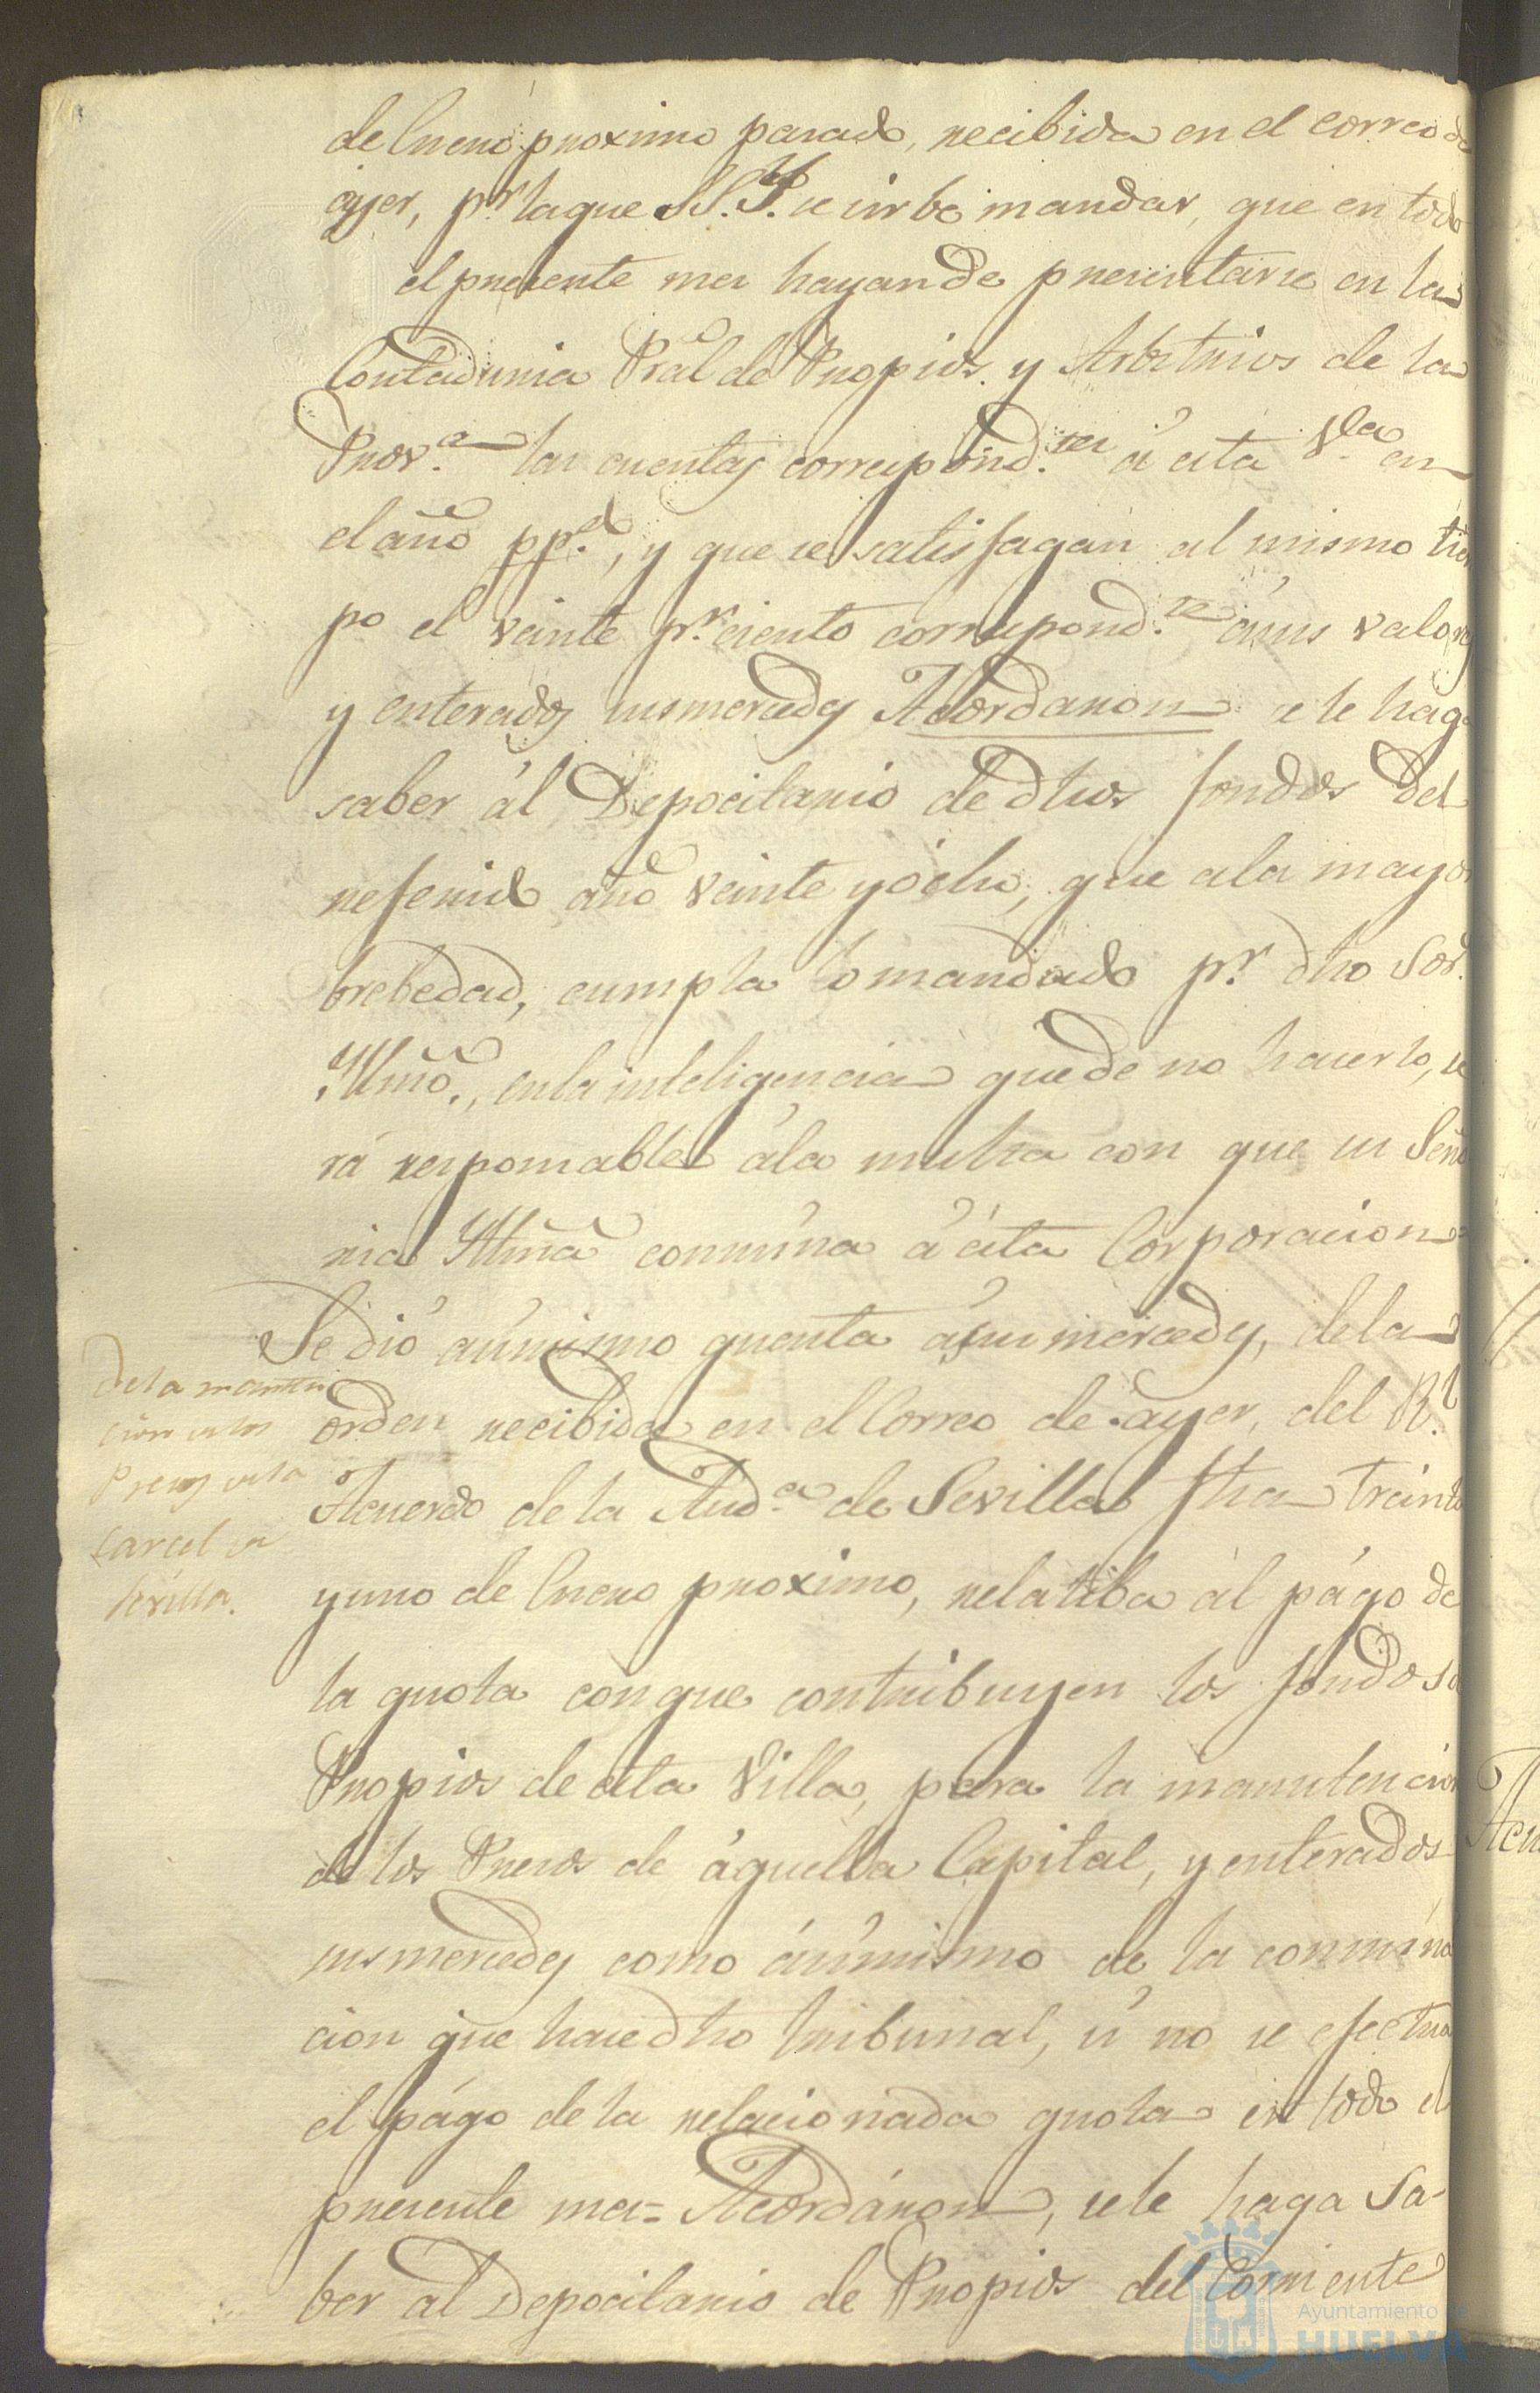 de Enero proximo pasado, recibida en el correo de
ayer, pr. la que S.S.Y. se sirbe mandar, que en todo
el presente mes hayan de presentarse en la
Contaduria Pral de Propios y Arbitrios de la
Prova. las cuentas correspondtes. á esta Vla. en
el año pp.do, y que se satisfagan al mismo tiem
po el veinte pr. ciento correspondte. á sus valores
y enterados susmercedes Acordaron se le haga
saber ál Depocitario de dhos fondos del
referido año veinte yócho, que a la mayor
brebedad, cumpla lo mandado pr. dho Sor.
Yllmõ., en la inteligencia que de no hacerlo, se
rá responsable á la multa con que su Seño
ria Yllmã conmina á ésta Corporacion
Se dió asimismo quenta á susmercedes, de la
orden recibida en el Correo de ayer, del Rl.
Acuerdo de la Auda. de Sevilla fha treinta
y uno de Enero proximo, relatiba ál págo de
la quota conque contribuyen los fondos de
Propios de esta Villa, para la manutencion
de los Presos de áquella Capital, y enterados
susmercedes como ásimismo de la conmina
cion que hace dho tribunal, si no se efectua
el págo de la relacionada quota en todo el
presente mes = Acordáron, se le haga sa-
ber al Depocitario de Propios del Corriente
De la manten
cion de los
Presos de la
Carcel de
Sevilla.
Acu
Ayuntamiento de
HUELVA